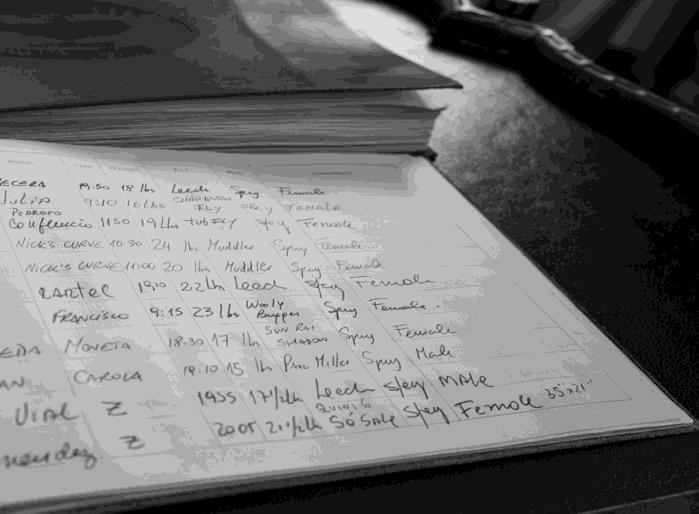 POOL TIME WEIGHT FLY
19:50 18 lbs Leech Spey Female
Julia 9:10 16 lbs FLY Spey FEMALE
PEDROTO
Confluencia 1150 19 lbs tub FLY Spey Female
NICK'S CURVE 10:30 24 lbs Muddler Spey Female
NICK'S CURVE 11:00 20 lbs Muddler Spey Female
CARTEL 1910 22 lbs Leech Spey Female
FRANCISCO 9:15 23 lbs Wooly Bugger Spey Female.
MONETA 18:30 17 lbs SUN RAY SHADOW Spey Female
CAROLA 19:10 15 lbs Pam Miller Spey Male
VIAL Z 1955 17 1/2 lb Leech Spey MALE
Z 2005 21 1/2 lb Spey Female 35"x21"